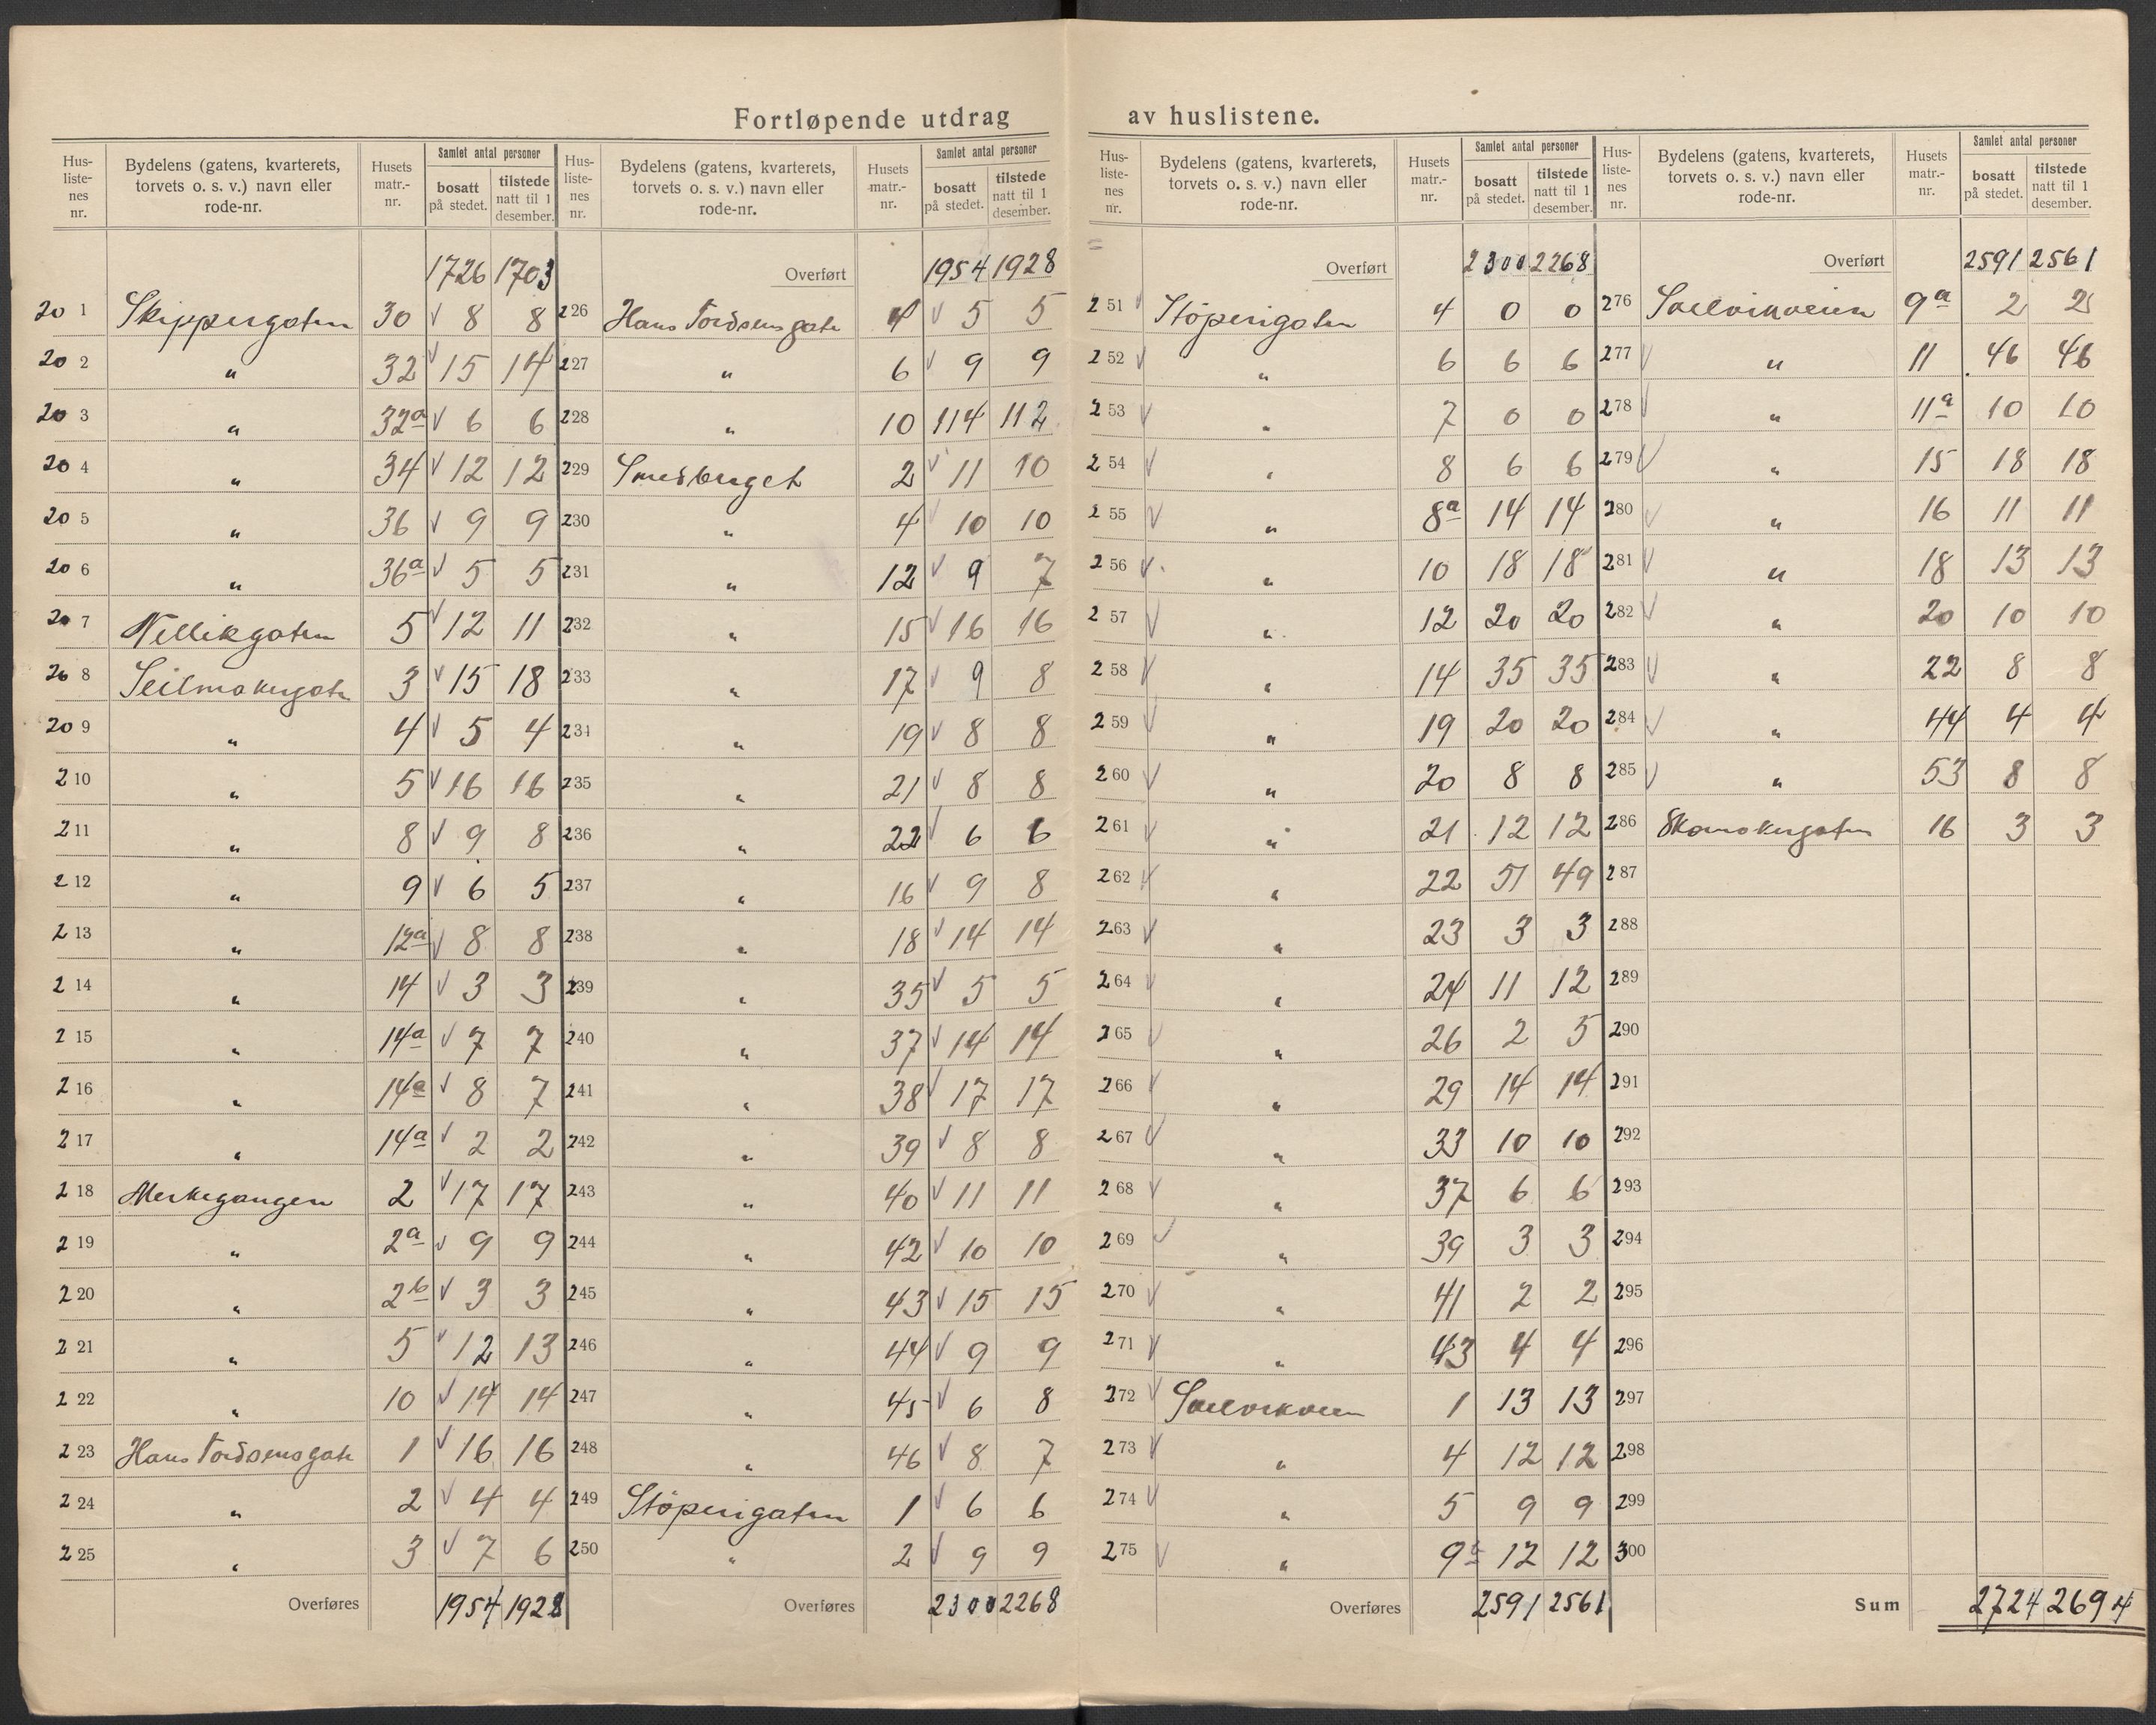 Fortløpende utdrag av huslistene.
Hus-liste-nes nr. Bydelens (gatens, kvarterets, torvets o. s. v.) navn eller rode-nr. Husets matr.-nr. Samlet antal personer bosatt på stedet. tilstede natt til 1 desember.
1726 1703
201 Skippergaten 30 v 8 8
202 " 32 v 15 14
203 " 32a v 6 6
204 " 34 v 12 12
205 " 36 v 9 9
206 " 36a v 5 5
207 Nellikgaten 5 v 12 11
208 Seilmakergate 3 v 15 18
209 " 4 v 5 4
210 " 5 v 16 16
211 " 8 v 9 8
212 " 9 v 6 5
213 " 12a v 8 8
214 " 14 v 3 3
215 " 14a v 7 7
216 " 14a v 8 7
217 " 14a v 2 2
218 Merkegangen 2 v 17 17
219 " 2a v 9 9
220 " 2b v 3 3
221 " 5 v 12 13
222 " 10 v 14 14
223 Hans Tordsensgate 1 v 16 16
224 " 2 v 4 4
225 " 3 v 7 6
Overføres 1954 1928
Hus-liste-nes nr. Bydelens (gatens, kvarterets, torvets o. s. v.) navn eller rode-nr. Husets matr.-nr. Samlet antal personer bosatt på stedet. tilstede natt til 1 desember.
Overført 1954 1928
226 Hans Tordsensgate 4 v 5 5
227 " 6 v 9 9
228 " 10 114 112
229 Smedberget 2 v 11 10
230 " 4 v 10 10
231 " 12 v 9 7
232 " 15 v 16 16
233 " 17 v 9 8
234 " 19 v 8 8
235 " 21 v 8 8
236 " 22 v 6 6
237 " 16 v 9 8
238 " 18 v 14 14
239 " 35 v 5 5
240 " 37 v 14 14
241 " 38 v 17 17
242 " 39 v 8 8
243 " 40 v 11 11
244 " 42 v 10 10
245 " 43 v 15 15
246 " 44 v 9 9
247 " 45 v 6 8
248 " 46 v 8 7
249 Støperigaten 1 v 6 6
250 " 2 v 9 9
Overføres 2300 2268
Hus-liste-nes nr. Bydelens (gatens, kvarterets, torvets o. s. v.) navn eller rode-nr. Husets matr.-nr. Samlet antal personer bosatt på stedet. tilstede natt til 1 desember.
Overført 2300 2268
251 v Støperigaten 4 0 0
252 v " 6 6 6
253 v " 7 0 0
254 v " 8 6 6
255 v " 8a 14 14
256 v " 10 18 18
257 v " 12 20 20
258 v " 14 35 35
259 v " 19 20 20
260 v " 20 8 8
261 v " 21 12 12
262 v " 22 51 49
263 v " 23 3 3
264 v " 24 11 12
265 v " 26 2 5
266 v " 29 14 14
267 v " 33 10 10
268 v " 37 6 6
269 v " 39 3 3
270 v " 41 2 2
271 v " 43 4 4
272 v Svelvikveien 1 13 13
273 v " 4 12 12
274 v " 5 9 9
275 v " 9 12 12
Overføres 2591 2561
Hus-liste-nes nr. Bydelens (gatens, kvarterets, torvets o. s. v.) navn eller rode-nr. Husets matr.-nr. Samlet antal personer bosatt på stedet. tilstede natt til 1 desember.
Overført 2591 2561
276 Svelvikveien 9a 2 2
277 v " 11 46 46
278 v " 11a 10 10
279 v " 15 18 18
280 v " 16 11 11
281 v " 18 13 13
282 v " 20 10 10
283 v " 22 8 8
284 v " 44 4 4
285 v " 53 8 8
286 Skomakergaten 16 3 3
287
288
289
290
291
292
293
294
295
296
297
298
299
300
Sum 2724 2694